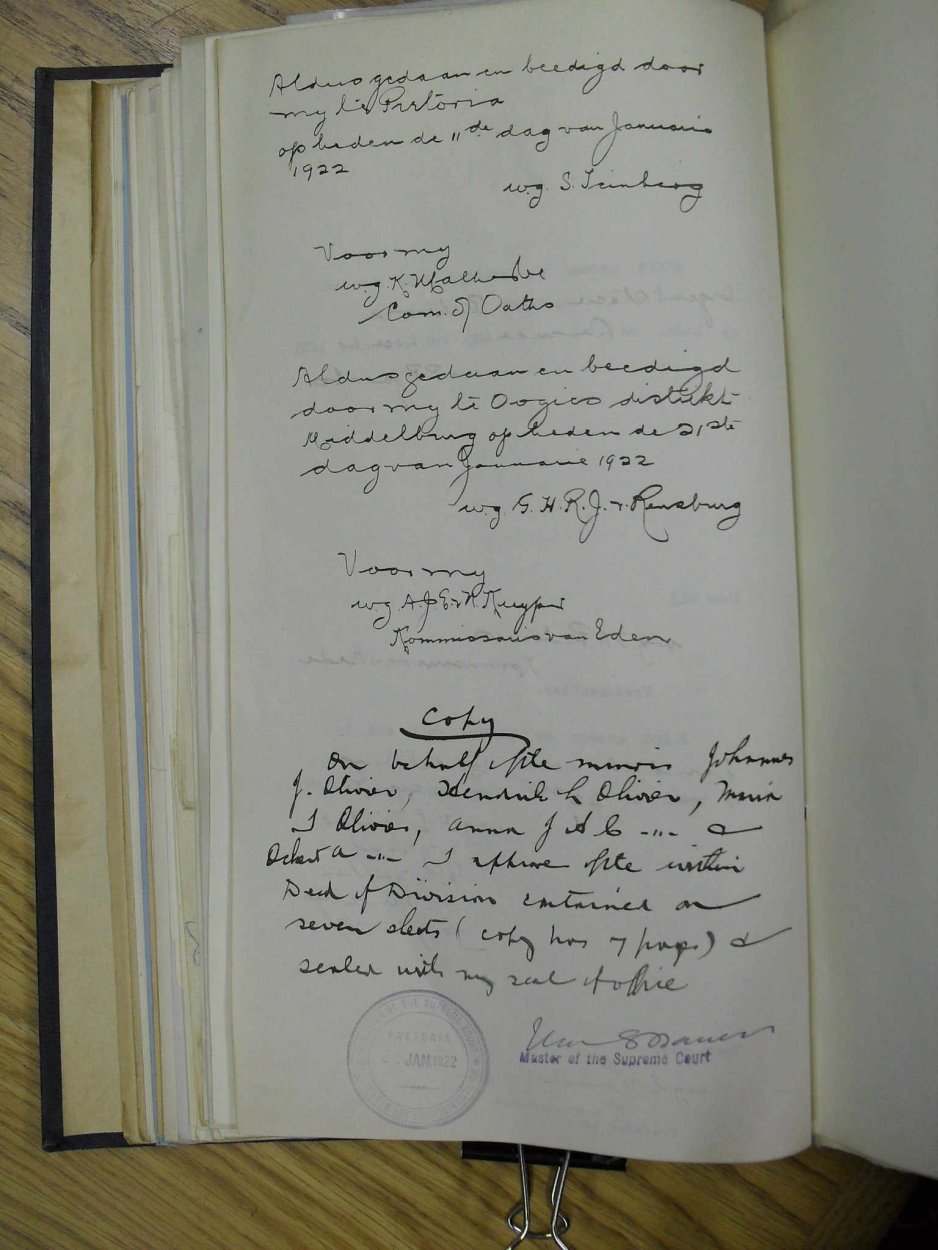 Aldus gedaan en beedigd door
my te Pretoria
op heden de 11de dag van Januarie
1922
w.g. S. Teinberg
Voor my
w.g. K. Malherbe
Com. of Oaths
Aldus gedaan en beedigd
door my te Oogies distrikt
Middelburg op heden de 21ste
dag van Januarie 1922
w.g. G. H. R. J. v. Rensburg
Voor my
w.g. A. J. E. v. R. Kuyper
Kommissaris van Eden
Copy
On behalf of the minors Johannes
J. Olivier, Hendrik C Olivier, Maria
J Olivier, Anna J A C -"- &
A -"- I approve of the within
Deed of Division contained on
seven sheets (copy has 7 pages) &
sealed with my seal of office
MASTER OF THE SUPREME COURT
PRETORIA
JAN. 1922
Master of the Supreme Court